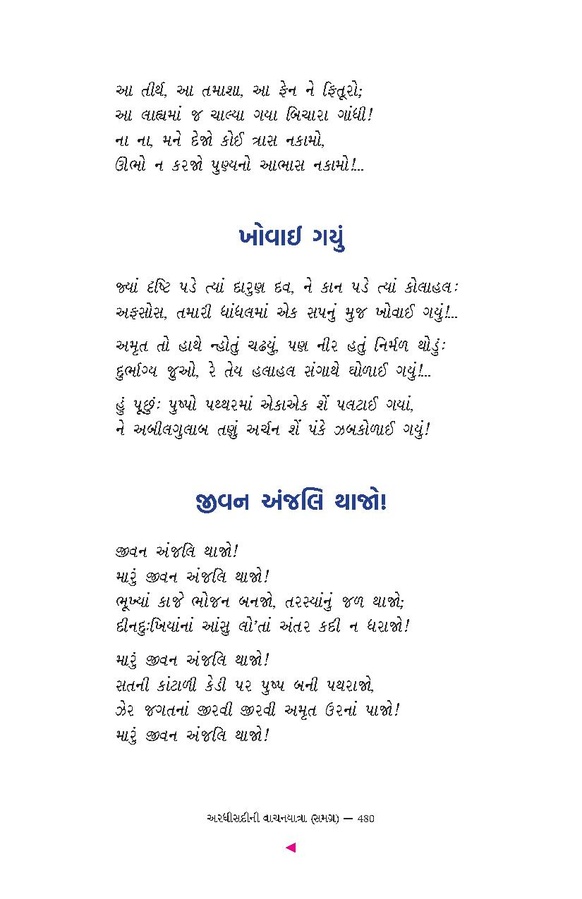 આ તીર્થ, આ તમાશા, આ ફેન ને ફિતૂરો;
આ લાહ્યમાં જ ચાલ્યા ગયા બિચારા ગાંધી!
ના ના, મને દેજો કોઈ ત્રાસ નકામો,
ઊભો ન કરજો પુણ્યનો આભાસ નકામો!…
ખોવાઈ ગયું
જ્યાં દૃષ્ટિ પડે ત્યાં દારુણ દવ, ને કાન પડે ત્યાં કોલાહલઃ
અફસોસ, તમારી ધાંધલમાં એક સપનું મુજ ખોવાઈ ગયું!…
અમૃત તો હાથે ન્હોતું ચઢયું, પણ નીર હતું નિર્મળ થોડુંઃ
દુર્ભાગ્ય જુઓ, રે તેય હલાહલ સંગાથે ઘોળાઈ ગયું!…
હું પૂછુંઃ પુષ્પો પથ્થરમાં એકાએક શેં પલટાઈ ગયાં,
ને અબીલગુલાબ તણું અર્ચન શેં પંકે ઝબકોળાઈ ગયું!
જીવન અંજલિ થાજો!
જીવન અંજલિ થાજો!
મારું જીવન અંજલિ થાજો!
ભૂખ્યાં કાજે ભોજન બનજો, તરસ્યાંનું જળ થાજો;
દીનદુઃખિયાંનાં આંસુ લો'તાં અંતર કદી ન ધરાજો!
મારું જીવન અંજલિ થાજો!
સતની કાંટાળી કેડી પર પુષ્પ બની પથરાજો,
ઝેર જગતનાં જીરવી જીરવી અમૃત ઉરનાં પાજો!
મારું જીવન અંજલિ થાજો!
અરધીસદીની વાચનયાત્રા (સમગ્ર) — 480